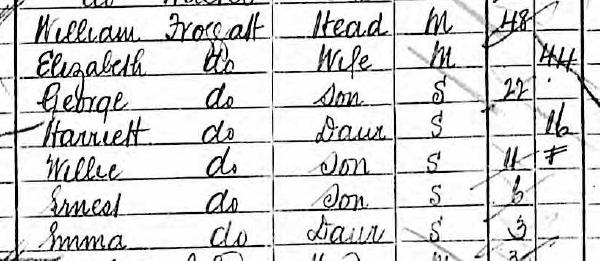 William Froggatt Head M 48
Elizabeth do Wife M 44
George do Son S 22
Harriett do Daur S 16
Willie do Son S 11
Ernest do Son S 6
Emma do Daur S 3